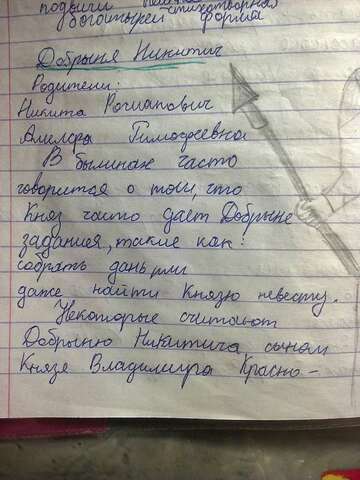 подвиги
стихотворная
богатырей форма
Добрыня Никитич
Родители:
Никита Романович
Амелфа Тимофеевна
В былинах часто
говорится о том, что
Князь часто даёт Добрыне
задания, такие как:
собрать дань, или
даже найти Князю невесту.
Некоторые считают
Добрыню Никитича сыном
Князя Владимира Красно-